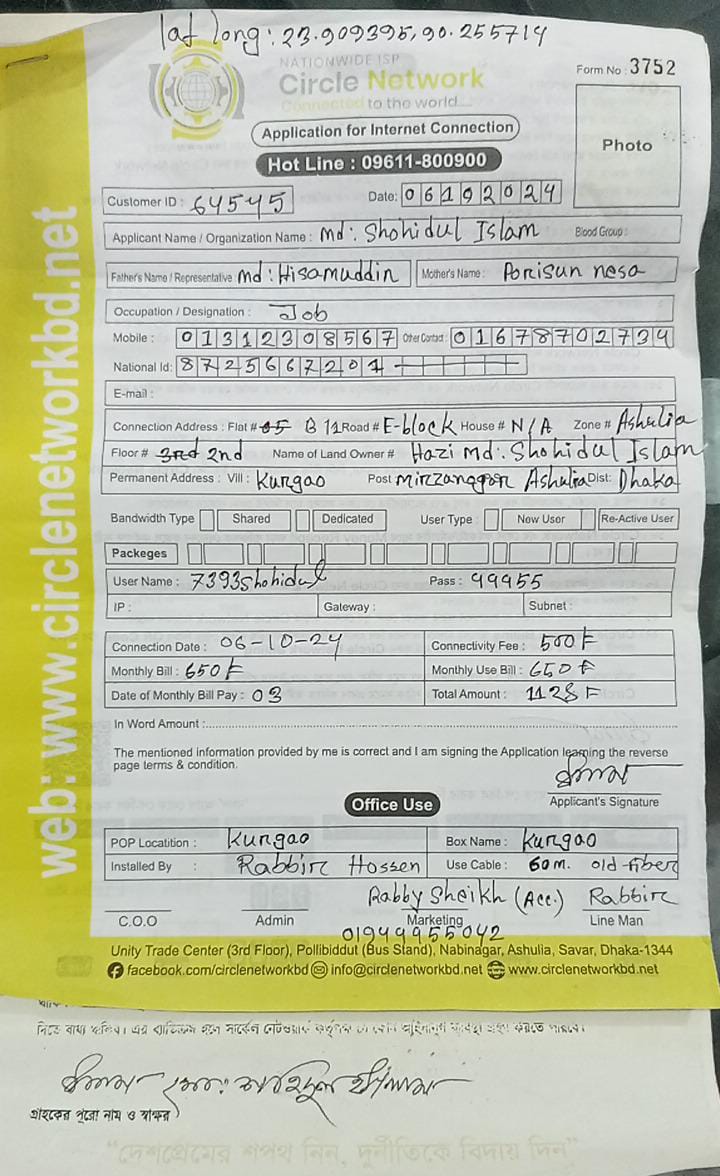 lat long: 23.909395, 90.255714
NATIONWIDE ISP
Circle Network
Connected to the world
Form No : 3752
Application for Internet Connection
Photo
Hot Line : 09611-800900
Customer ID : 64545 Date: 06192024
Applicant Name / Organization Name : Md: Shohidul Islam Blood Group :
Father's Name / Representative : Md: Hisamuddin Mother's Name : Porisun nesa
Occupation / Designation : Job
Mobile : 01312308567 Other Contact : 01678702734
National Id: 8725667201
E-mail :
Connection Address : Flat # B 11 Road # E-block House # N/A Zone # Ashulia
Floor # 3rd 2nd Name of Land Owner # Hazi Md: Shohidul Islam
Permanent Address : Vill : Kurgao Post Mirzanagar Ashulia Dist: Dhaka
Bandwidth Type Shared Dedicated User Type : New User Re-Active User
Packeges
User Name : 7393shohidul Pass : 49955
IP : Gateway : Subnet :
Connection Date : 06-10-24 Connectivity Fee : 500 F
Monthly Bill : 650 F Monthly Use Bill : 650 F
Date of Monthly Bill Pay : 03 Total Amount : 1128 F
In Word Amount :
The mentioned information provided by me is correct and I am signing the Application learning the reverse
page terms & condition.
Applicant's Signature
Office Use
POP Locatition : Kurgao Box Name : Kurgao
Installed By : Rabbir Hossen Use Cable : 60m. old fiber
Rabby Sheikh (Acc.) Rabbir
C.O.O Admin Marketing Line Man
01949955042
Unity Trade Center (3rd Floor), Pollibiddut (Bus Stand), Nabinagar, Ashulia, Savar, Dhaka-1344
facebook.com/circlenetworkbd info@circlenetworkbd.net www.circlenetworkbd.net
web: www.circlenetworkbd.net
গ্রাহকের পুরো নাম ও স্বাক্ষর
“দেশপ্রেমের শপথ নিন, দুর্নীতিকে বিদায় দিন”